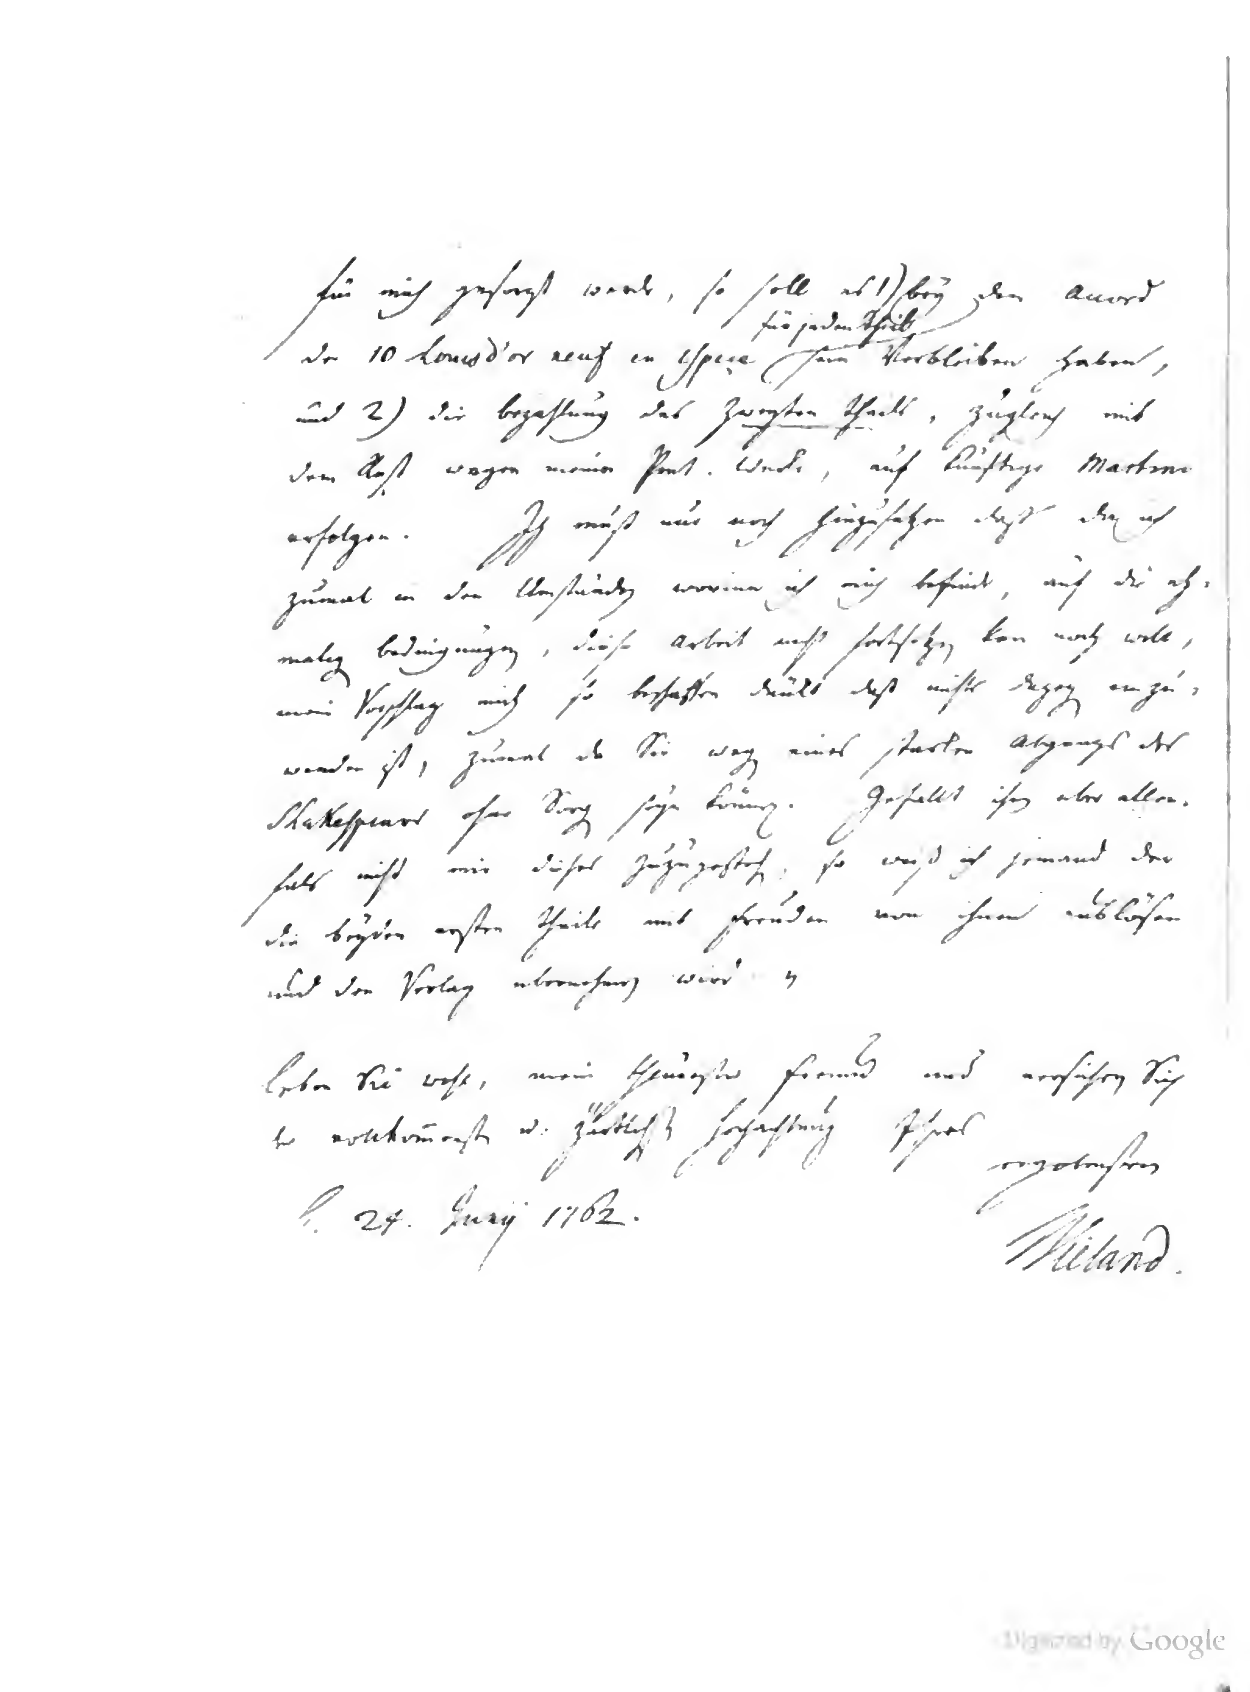 für mich gesorgt werde, so soll es 1) bey dem Accord
für jeden Theil
der 10 Louisd'or neuf en espece sein Verbleiben haben,
und 2) die bezahlung des zweyten Theils, zugleich mit
dem Rest wegen meiner Poet. Werke, auf künftige Martini
erfolgen. Ich muß nur noch hinzusetzen daß ich
zumal in den Umständen worinn ich mich befinde, auf die eh-
malig bedingungen, diese Arbeit nicht fortsetzen kan noch will,
mein Vorschlag mich so beschaffen dünkt daß nichts dagegen einzu-
wenden ist, zumal da Sie wegen eines starken Abgangs des
Shakespears ohne Sorg seyn können. Gefällt ihnen aber allen-
fals nicht mir dieses zuzugestehn, so weiß ich jemand der
die beyden ersten Theile mit Freuden von ihnen auslösen
und den Verlag übernehmen wird
Leben Sie wohl, mein theurester Freund und versichern Sich
der vollkommenst u. zärtlichsten Hochachtung Ihres
ergebensten
24. Junij 1762.
Wieland.
Digitized by Google